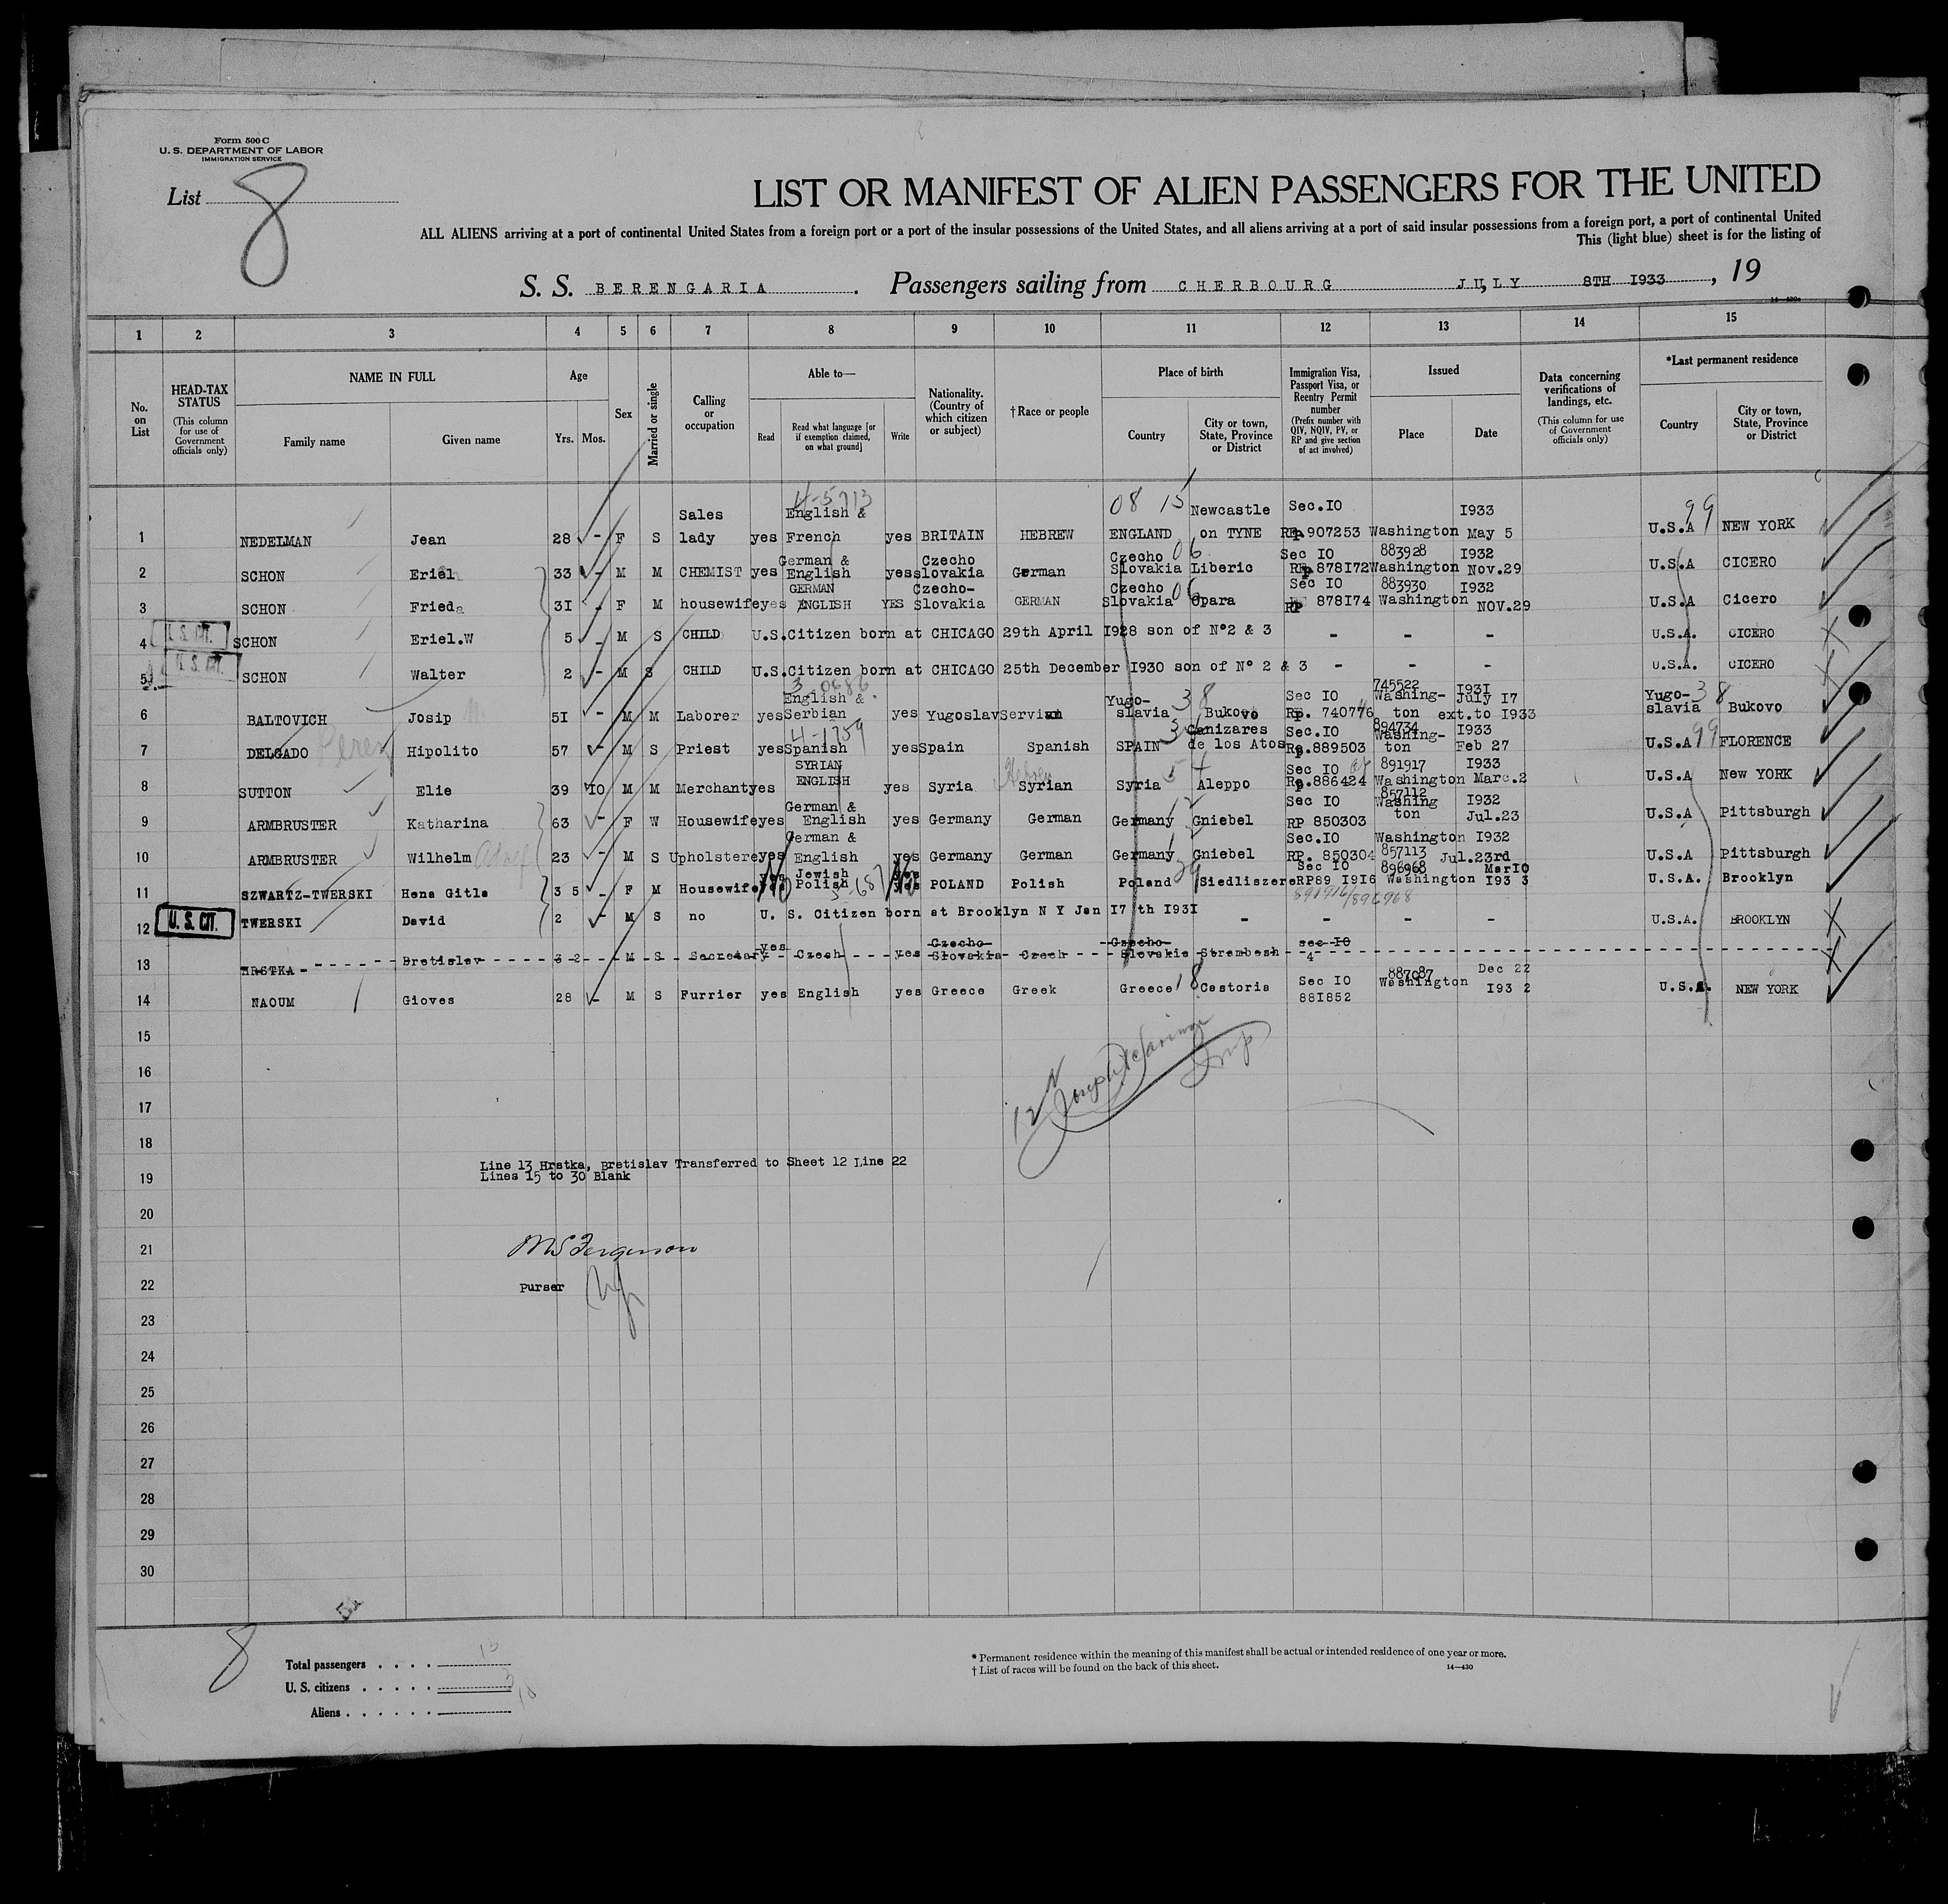 Form 500 C
U. S. DEPARTMENT OF LABOR
IMMIGRATION SERVICE
List 8
LIST OR MANIFEST OF ALIEN PASSENGERS FOR THE UNITED
ALL ALIENS arriving at a port of continental United States from a foreign port or a port of the insular possessions of the United States, and all aliens arriving at a port of said insular possessions from a foreign port, a port of continental United
This (light blue) sheet is for the listing of
S. S. BERENGARIA. Passengers sailing from CHERBOURG JULY, 8TH 1933, 19
1 2 3 4 5 6 7 8 9 10 11 12 13 14 15
No. on List
HEAD-TAX STATUS (This column for use of Government officials only)
NAME IN FULL
Family name Given name
Age Yrs. Mos.
Sex
Married or single
Calling or occupation
Able to—
Read Read what language [or if exemption claimed, on what ground] Write
Nationality. (Country of which citizen or subject)
†Race or people
Place of birth
Country City or town, State, Province or District
Immigration Visa, Passport Visa, or Reentry Permit number (Prefix number with QIV, NQIV, PV, or RP and give section of act involved)
Issued
Place Date
Data concerning verifications of landings, etc. (This column for use of Government officials only)
*Last permanent residence
Country City or town, State, Province or District
4-5713 08 15 99
1 NEDELMAN Jean 28 - F S Sales lady yes English & French yes BRITAIN HEBREW ENGLAND Newcastle on TYNE Sec.I0 RP.907253 Washington I933 May 5 U.S.A NEW YORK
2 SCHON Eriel 33 - M M CHEMIST yes German & English yes Czecho slovakia German Czecho Slovakia 06 Liberic Sec I0 RP 878I72 883928 Washington I932 Nov.29 U.S.A CICERO
3 SCHON Frieda 3I - F M housewife yes GERMAN ENGLISH YES Czecho- Slovakia GERMAN Czecho Slovakia 06 Opara Sec I0 RP 878I74 883930 Washington I932 NOV.29 U.S.A Cicero
4 U. S. CIT. SCHON Eriel.W 5 - M S CHILD U.S.Citizen born at CHICAGO 29th April I928 son of N°2 & 3 - - - U.S.A. CICERO
5 U. S. CIT. SCHON Walter 2 - M S CHILD U.S.Citizen born at CHICAGO 25th December I930 son of N° 2 & 3 - - - U.S.A. CICERO
6 BALTOVICH Josip 5I - M M Laborer yes 3-0686 English & Serbian yes Yugoslav Servian Yugo- slavia 38 Bukovo Sec I0 RP. 740776 745522 Washing- ton I93I July I7 ext.to I933 Yugo- slavia 38 Bukovo
7 DELGADO Perez Hipolito 57 - M S Priest yes 4-1759 Spanish yes Spain Spanish SPAIN Canizares de los Atos Sec.I0 Rp.889503 894734 Washing- ton I933 Feb 27 U.S.A 99 FLORENCE
8 SUTTON Elie 39 I0 M M Merchant yes SYRIAN ENGLISH yes Syria Hebrew Syrian Syria 54 Aleppo Sec I0 Rp.886424 891917 Washington I933 Marc.2 U.S.A New YORK
9 ARMBRUSTER Katharina 63 - F W Housewife yes German & English yes Germany German Germany 12 Gniebel Sec I0 RP 850303 857112 Washing ton I932 Jul.23 U.S.A Pittsburgh
10 ARMBRUSTER Wilhelm Adolf 23 - M S Upholsterer yes German & English yes Germany German Germany Gniebel Sec.I0 RP. 850304 Washington 857113 I932 Jul.23rd U.S.A Pittsburgh
11 SZWARTZ-TWERSKI Hena Gitla 3 5 - F M Housewife No Jewish Polish No POLAND Polish Poland Siedliszere Sec I0 RP89 I9I6 896968 Washington MarI0 I93 3 U.S.A. Brooklyn
891916/896968
12 U. S. CIT. TWERSKI David 2 - M S no U. S. Citizen born at Brooklyn N Y Jan I7 th I93I - - - U.S.A. BROOKLYN
13 HRSTKA Bretislav 3 2 - M S Secretary yes Czech yes Czecho- Slovakia Czech Czecho- Slovakia Strembesh sec I0 4
14 NAOUM Gioves 28 - M S Furrier yes English yes Greece Greek Greece 18 Castoria Sec I0 88I852 887087 Washington Dec 22 I93 2 U.S.A. NEW YORK
15
16
17
18
Line 13 Hrstka, Bretislav Transferred to Sheet 12 Line 22
19 Lines 15 to 30 Blank
20
21 Ferguson
22 Purser
23
24
25
26
27
28
29
30
8
Total passengers . . . .
U. S. citizens . . . . . 3
Aliens . . . . . . 10
* Permanent residence within the meaning of this manifest shall be actual or intended residence of one year or more.
† List of races will be found on the back of this sheet. 14—430